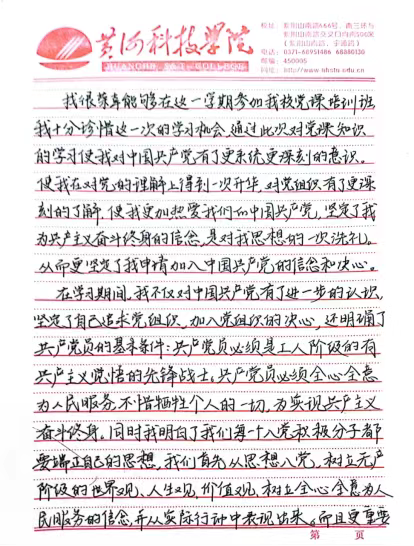 黄河科技学院
HUANGHE S&T COLLEGE
电话：0371-68951486 68880130
邮编：450005
网址：http://www.hhstu.edu.cn
我很荣幸能够在这一学期参加我校党课培训班
我十分珍惜这一次的学习机会，通过此次对党课知识
的学习使我对中国共产党有了更系统更深刻的意识。
使我在对党的理解上得到一次升华，对党组织有了更深
刻的了解，使我更加热爱我们的中国共产党，坚定了我
为共产主义奋斗终身的信念，是对我思想的一次洗礼。
从而更坚定了我申请加入中国共产党的信念和决心。
在学习期间，我不仅对中国共产党有了进一步的认识，
坚定了自己追求党组织，加入党组织的决心，还明确了
共产党员的基本条件：共产党员必须是工人阶级的有
共产主义觉悟的先锋战士。共产党员必须全心全意
为人民服务，不惜牺牲个人的一切，为实现共产主义
奋斗终身。同时我明白了我们每一个入党积极分子都
要端正自己的思想，我们首先从思想入党，树立无产
阶级的世界观、人生观、价值观，树立全心全意为人
民服务的信念，并从实际行动中表现出来。而且更重要
第 页